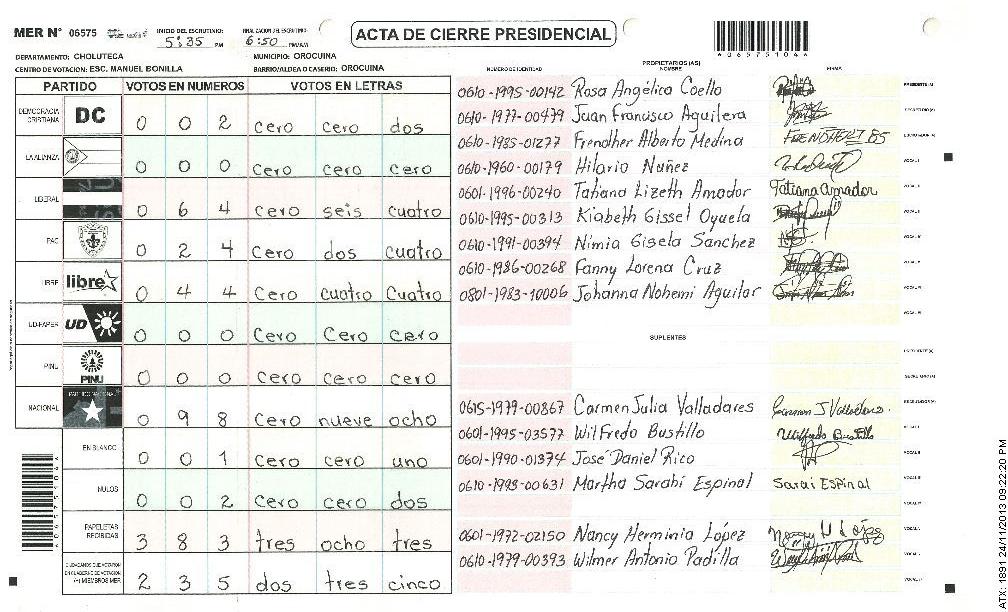 MER N° 06575 INICIO DEL ESCRUTINIO: 5:35 PM FINALIZACION DEL ESCRUTINIO: 6:50 PM/AM
ACTA DE CIERRE PRESIDENCIAL
0657510 4
DEPARTAMENTO: CHOLUTECA MUNICIPIO: OROCUINA
CENTRO DE VOTACION: ESC. MANUEL BONILLA BARRIO/ALDEA O CASERIO: OROCUINA
PARTIDO VOTOS EN NUMEROS VOTOS EN LETRAS
DEMOCRACIA CRISTIANA DC 0 0 2 cero cero dos
LA ALIANZA 0 0 0 cero cero cero
LIBERAL 0 6 4 cero seis cuatro
PAC 0 2 4 cero dos cuatro
LIBRE libre 0 4 4 cero cuatro cuatro
UD-FAPER UD 0 0 0 cero cero cero
PINU PINU 0 0 0 cero cero cero
NACIONAL PARTIDO NACIONAL 0 9 8 cero nueve ocho
EN BLANCO 0 0 1 cero cero uno
NULOS 0 0 2 cero cero dos
PAPELETAS RECIBIDAS 3 8 3 tres ocho tres
CIUDADANOS QUE VOTARON EN CUADERNO DE VOTACION (+) MIEMBROS MER 2 3 5 dos tres cinco
PROPIETARIOS (AS)
NUMERO DE IDENTIDAD NOMBRE FIRMA
0610-1995-00142 Rosa Angélica Coello PRESIDENTE (A)
0610-1977-00479 Juan Francisco Aguilera SECRETARIO (A)
0610-1985-01277 Frendher Alberto Medina FRENDHERT 85 ESCRUTADOR (A)
0610-1960-00179 Hilario Nuñez VOCAL I
0601-1996-00240 Tatiana Lizeth Amador Tatiana Amador VOCAL II
0610-1995-00313 Kiabeth Gissel Oyuela
0610-1991-00394 Nimia Gisela Sanchez
0610-1986-00268 Fanny Lorena Cruz
0801-1983-10006 Johanna Nohemi Aguilar
SUPLENTES
0615-1979-00867 Carmen Julia Valladares Carmen J Valladares
0601-1995-03577 Wilfredo Bustillo Wilfredo Bustillo
0601-1990-01374 José Daniel Rico
0610-1993-00631 Martha Sarahí Espinal Sarai Espinal
0601-1972-02150 Nancy Herminia López Nancy H López
0610-1979-00393 Wilmer Antonio Padilla
ATX: 1891 24/11/2013 09:22:20 PM